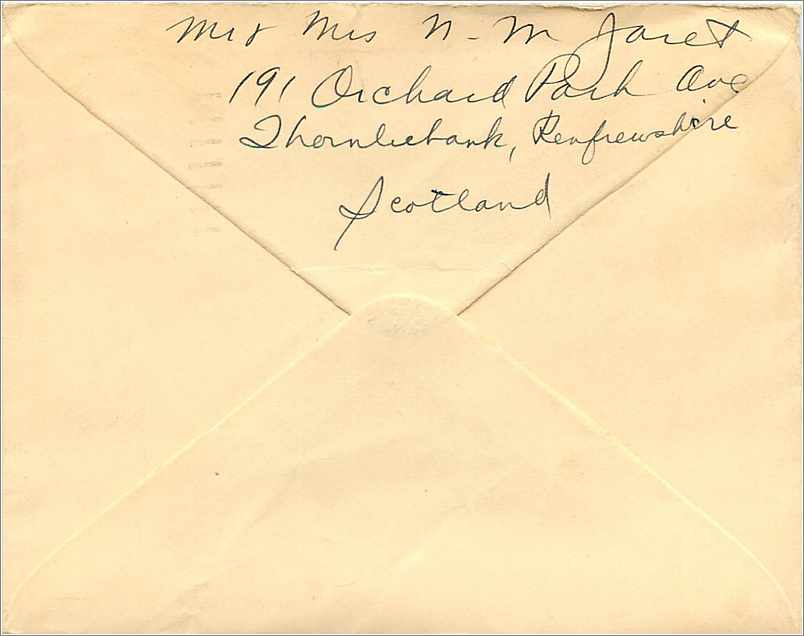 Mr & Mrs N-M Jaret
191 Orchard Park Ave
Thornliebank, Renfrewshire
Scotland